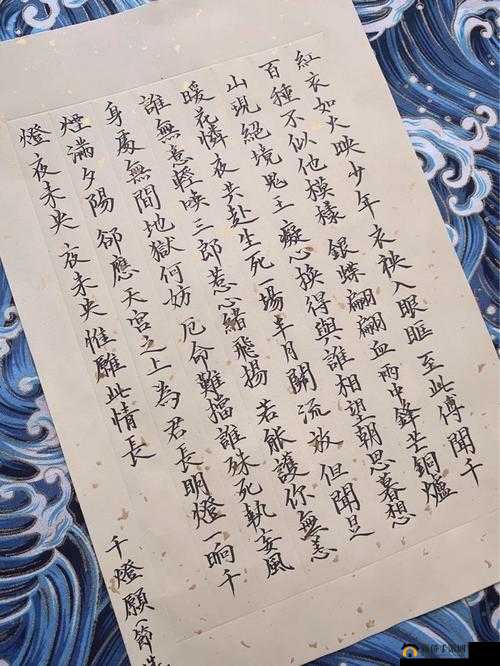 紅衣如火映少年衣袂入眼眶至此傳聞千
百種不似他模樣 銀蝶翩翩血雨中鋒芒銅爐
山現絕境鬼王癡心換得與誰相望朝思暮想
暖花憐夜共赴生死一場半月關流放但聞是
誰無意輕喚三郎惹心緒飛揚 若能護你無恙
身處無間地獄何妨 厄命難擋誰殊死執妄風
煙滿夕陽 卻應天宮之上為君長明燈一晌千
燈夜未央夜未央惟願此情長
千燈願 節